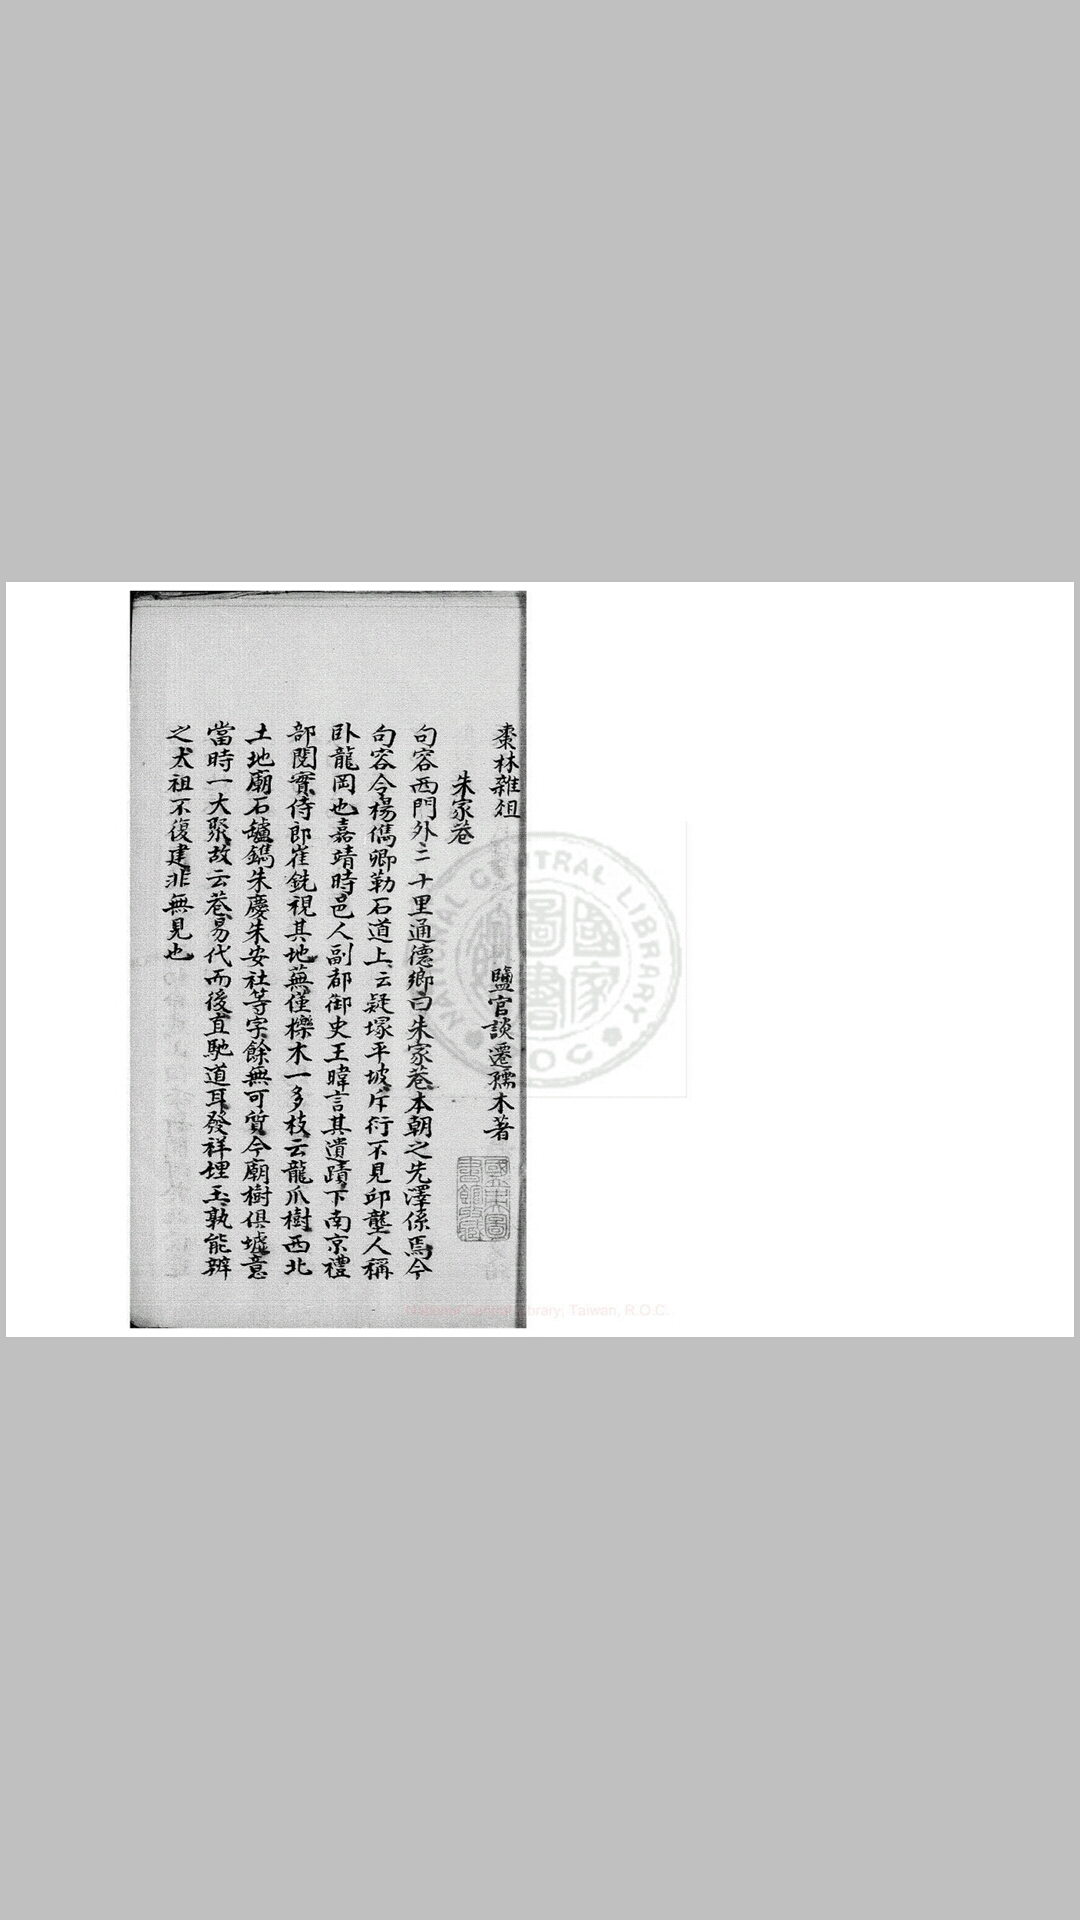 棗林雜俎
鹽官談遷孺木著
朱家巷
句容西門外二十里通德鄉曰朱家巷本朝之先澤係焉今
句容令楊儁卿勒石道上云疑塚平坡斥衍不見邱壟人稱
卧龍岡也嘉靖時邑人副都御史王暐言其遺蹟下南京禮
部閱實侍郎崔銑視其地蕪僅櫟木一多枝云龍爪樹西北
土地廟石罏鐫朱慶朱安社等字餘無可質今廟樹俱墟意
當時一大聚故云巷易代而後直馳道耳發祥埋玉孰能辨
之太祖不復建非無見也
NATIONAL CENTRAL LIBRARY
R O C
國家圖書館
National Central Library, Taiwan, R.O.C.